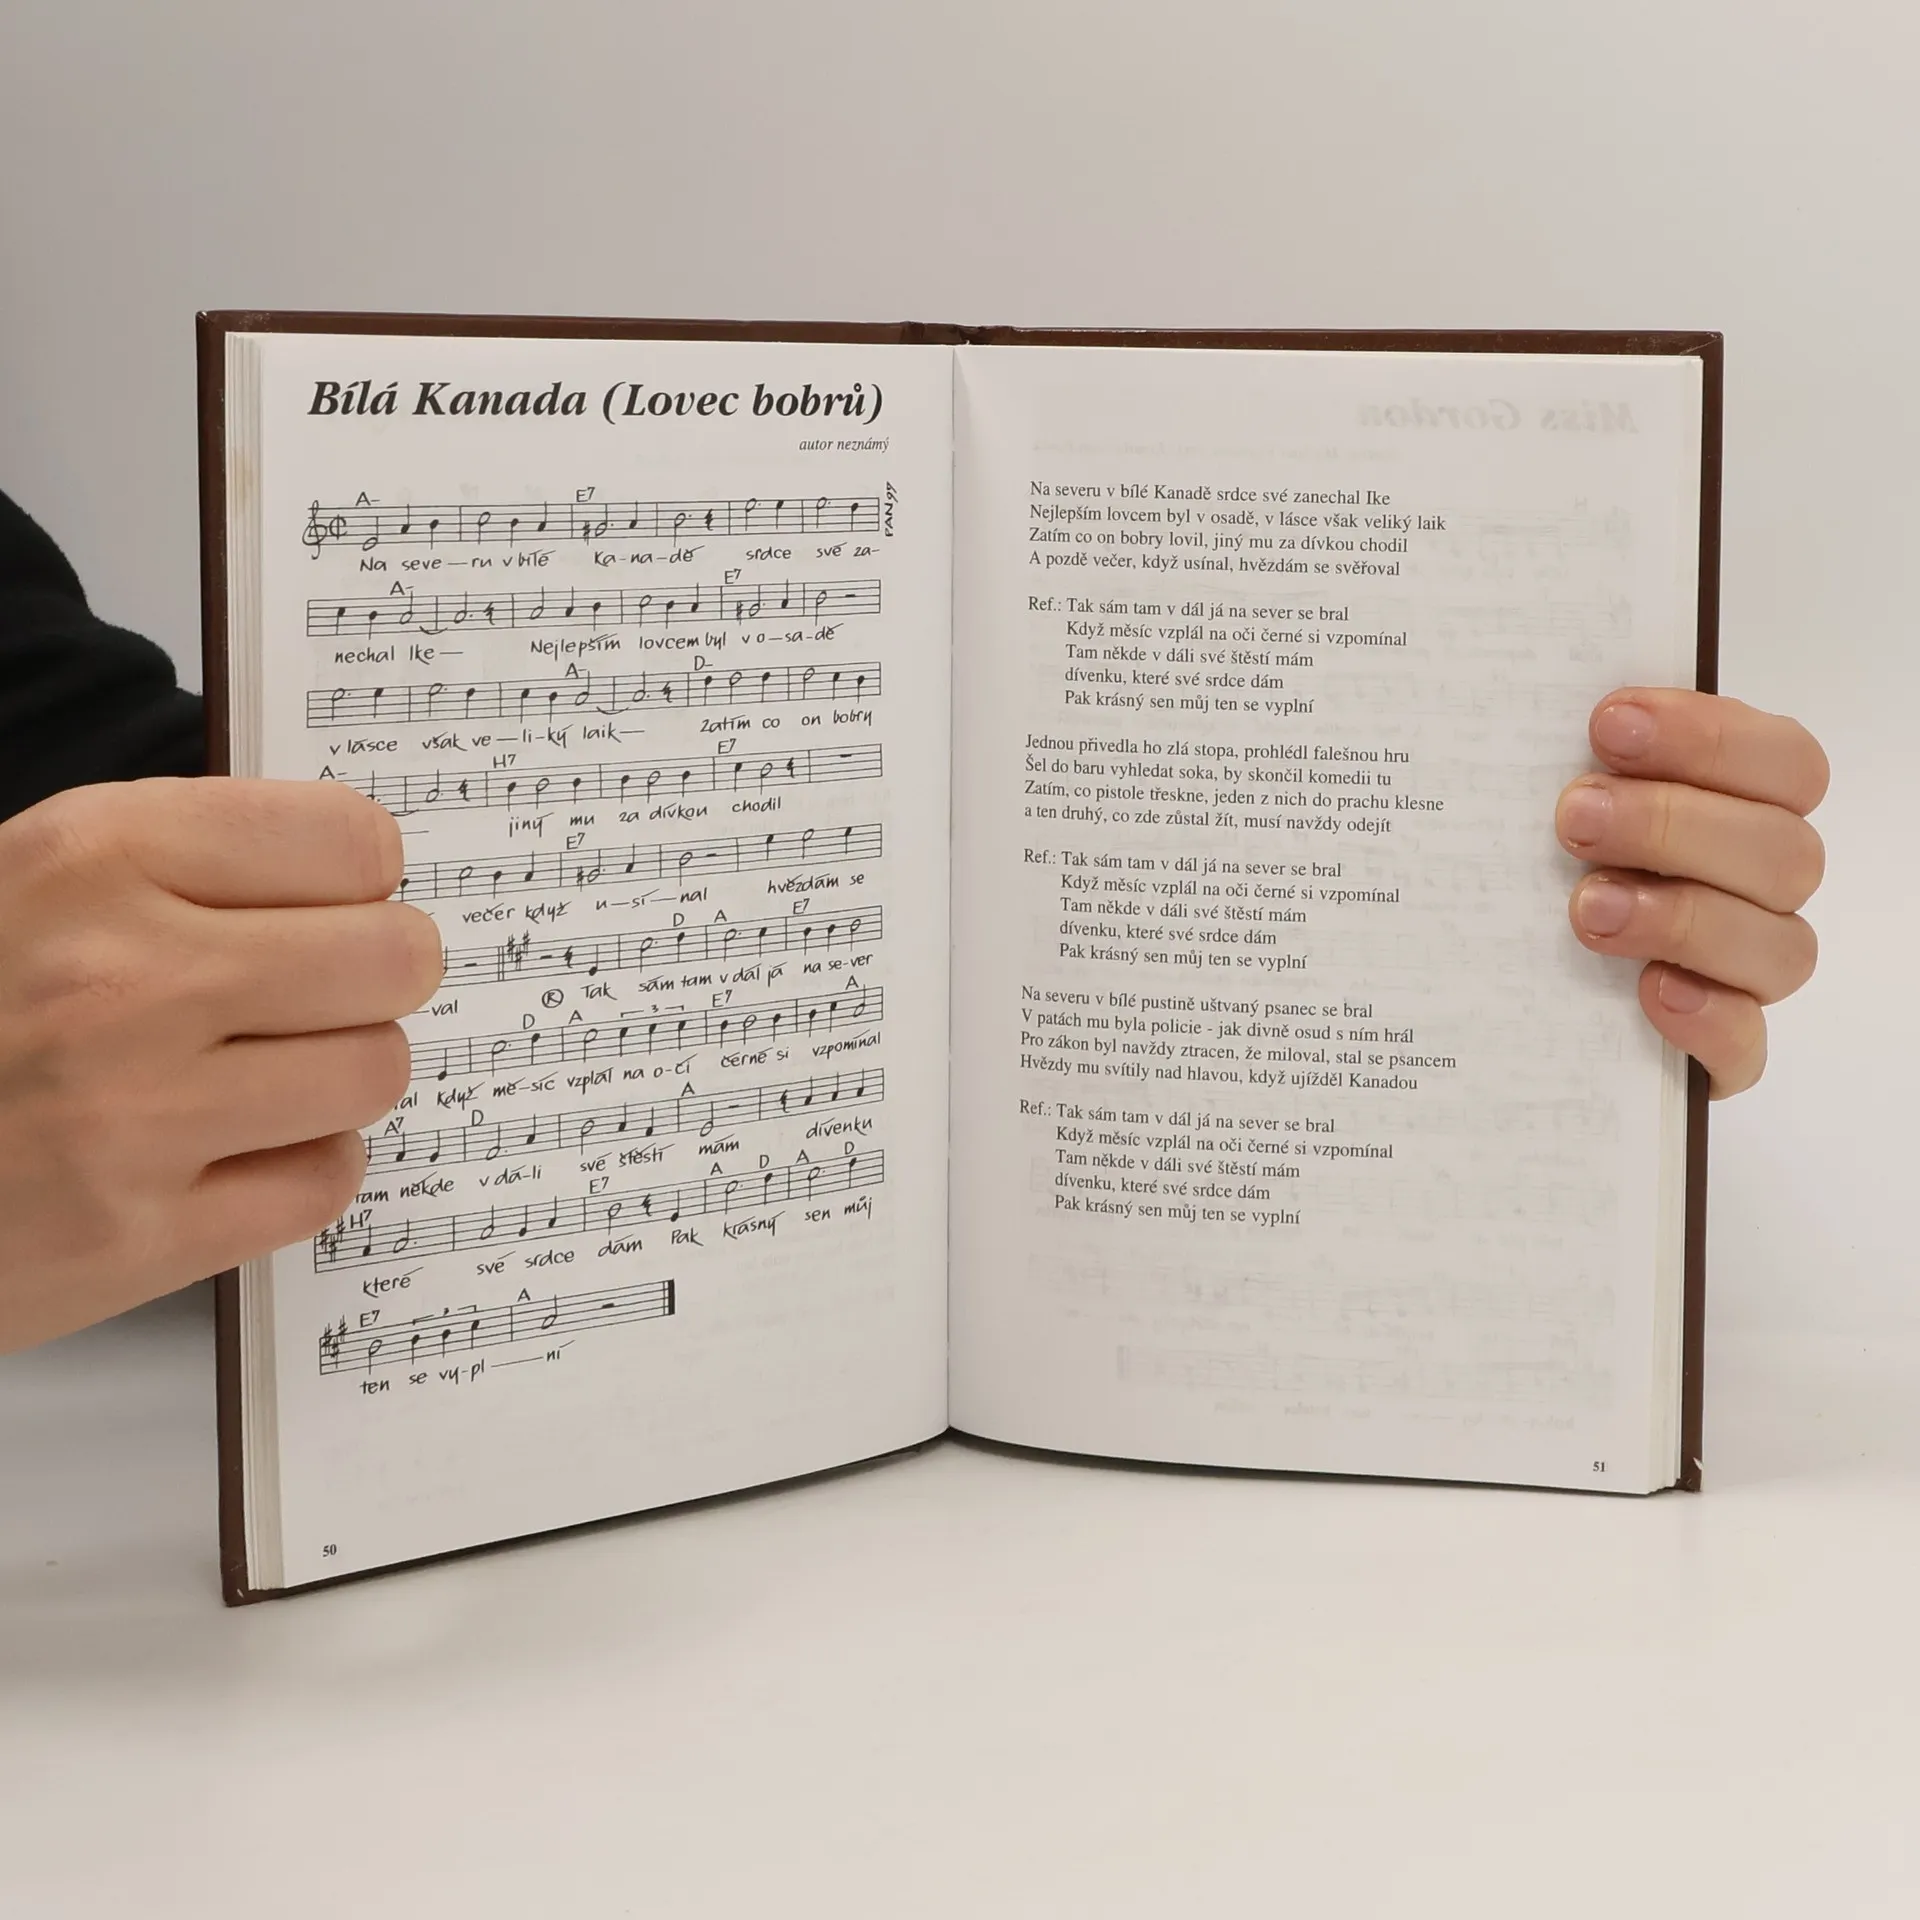 Bílá Kanada (Lovec bobrů)
autor neznámý
A- E7
PAN99
Na seve—ru v bílé Ka-na-dě srdce své za-
A- E7
nechal Ike— Nejlepším lovcem byl v o-sa-dě
A- D-
v lásce však ve-li-ký laik— Zatím co on bobry
A- H7 E7
jiný mu za dívkou chodil
E7
večer když u-sí-nal hvězdám se
D A E7
—val Ⓡ Tak sám tam v dál já na se-ver
D A 3 E7 A
Když mě-síc vzplál na o-čí černé si vzpomínal
A7 D A
Tam někde v dá-li své štěstí mám dívenku
H7 E7 A D A D
které své srdce dám Pak krásný sen můj
E7 3 A
ten se vy-pl——ní
50
Na severu v bílé Kanadě srdce své zanechal Ike
Nejlepším lovcem byl v osadě, v lásce však veliký laik
Zatím co on bobry lovil, jiný mu za dívkou chodil
A pozdě večer, když usínal, hvězdám se svěřoval
Ref.: Tak sám tam v dál já na sever se bral
Když měsíc vzplál na oči černé si vzpomínal
Tam někde v dáli své štěstí mám
dívenku, které své srdce dám
Pak krásný sen můj ten se vyplní
Jednou přivedla ho zlá stopa, prohlédl falešnou hru
Šel do baru vyhledat soka, by skončil komedii tu
Zatím, co pistole třeskne, jeden z nich do prachu klesne
a ten druhý, co zde zůstal žít, musí navždy odejít
Ref.: Tak sám tam v dál já na sever se bral
Když měsíc vzplál na oči černé si vzpomínal
Tam někde v dáli své štěstí mám
dívenku, které své srdce dám
Pak krásný sen můj ten se vyplní
Na severu v bílé pustině uštvaný psanec se bral
V patách mu byla policie - jak divně osud s ním hrál
Pro zákon byl navždy ztracen, že miloval, stal se psancem
Hvězdy mu svítily nad hlavou, když ujížděl Kanadou
Ref.: Tak sám tam v dál já na sever se bral
Když měsíc vzplál na oči černé si vzpomínal
Tam někde v dáli své štěstí mám
dívenku, které své srdce dám
Pak krásný sen můj ten se vyplní
51